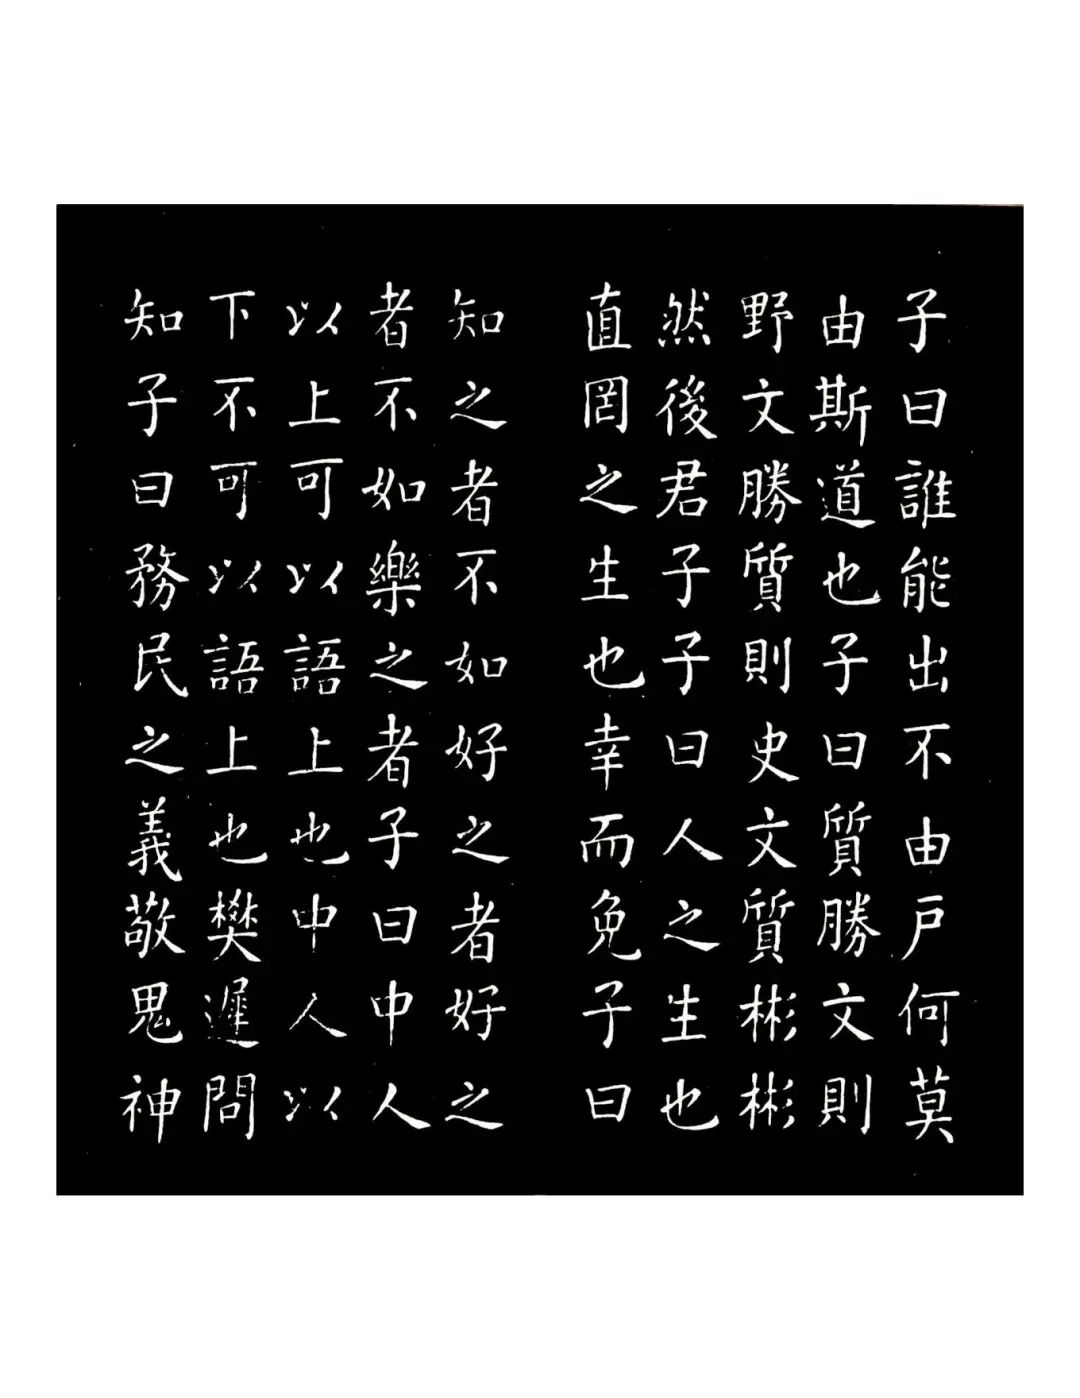 子曰誰能出不由戶何莫
由斯道也子曰質勝文則
野文勝質則史文質彬彬
然後君子子曰人之生也
直罔之生也幸而免子曰
知之者不如好之者好之
者不如樂之者子曰中人
以上可以語上也中人以
下不可以語上也樊遲問
知子曰務民之義敬鬼神